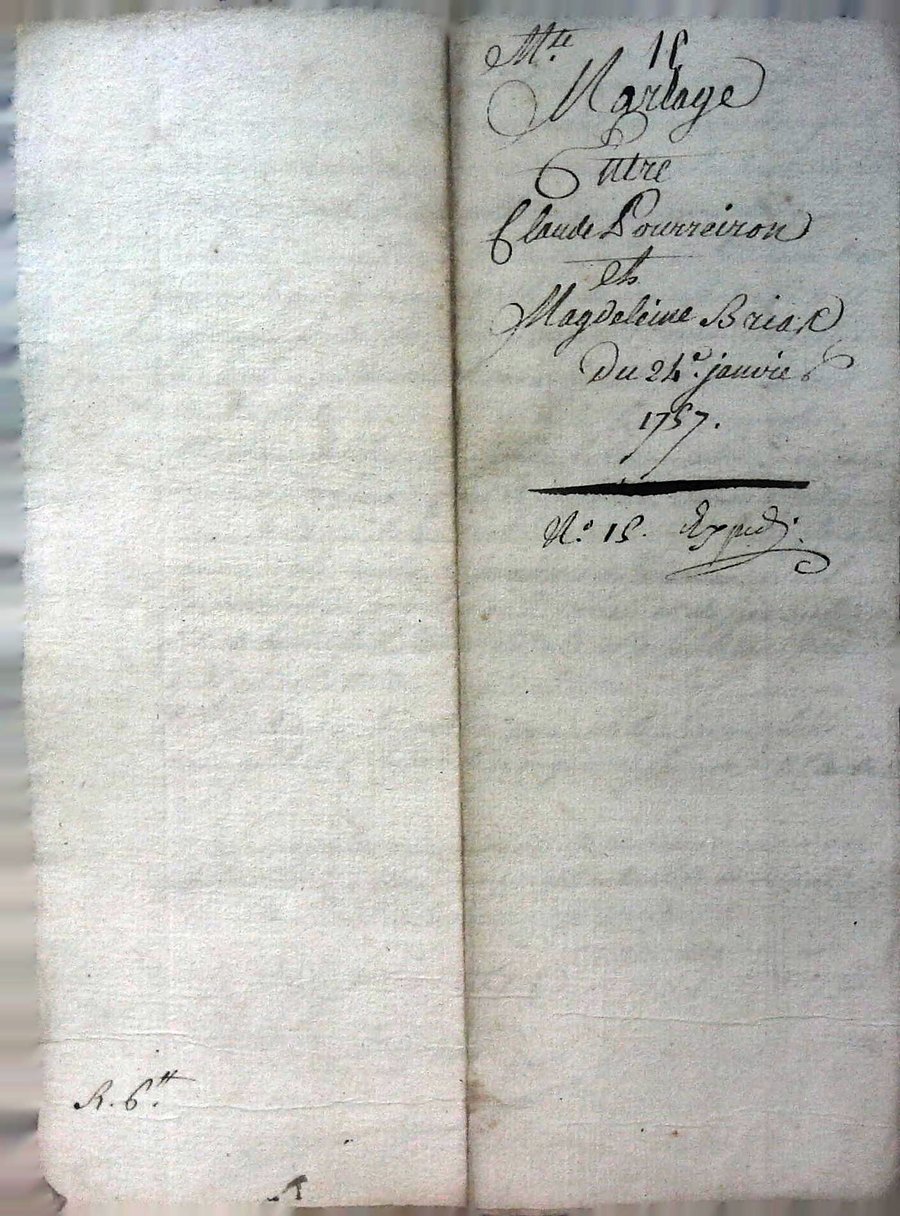 M.te 15
Mariage
Entre
Claude Pourreiron
et
Magdeleine Briak
Du 24.e janvier
1757.
N.o 15. Expedj.
R. 6.tt